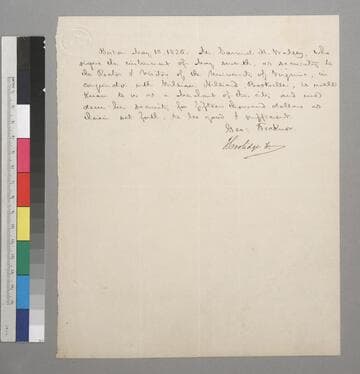 Boston May 10. 1825. Mr. Samuel H. Walley, who
signs the instrument of May seventh, as security to
the Rector & Visitors of the University of Virginia, in
conjunction with William Hilliard Bookseller, is well
known to us as a merchant of this city, and we
deem his security for fifteen thousand dollars as
therein set forth, to be good & sufficient.
Geo: Ticknor